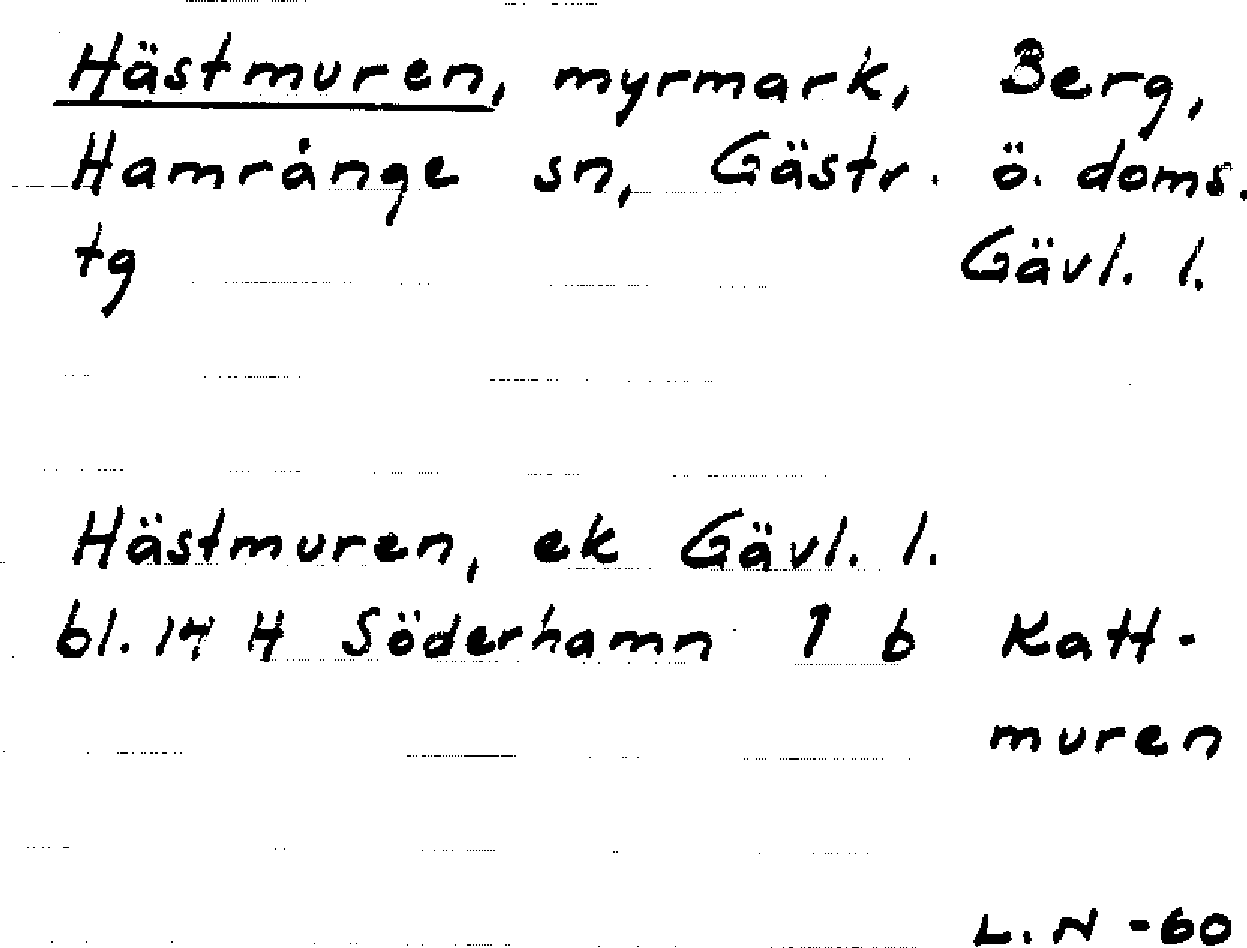 Hästmuren, myrmark, Berg,
Hamrånge sn, Gästr. ö. doms.
tg Gävl. l.
Hästmuren, ek Gävl. l.
bl. 14 H Söderhamn 1 b Katt-
muren
L. N -60